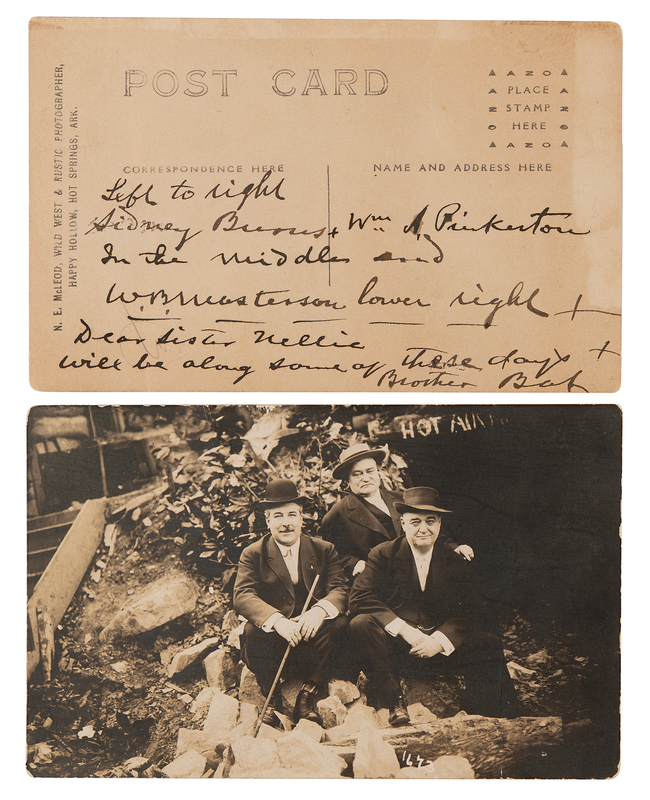 N. E. McLEOD, WILD WEST & RUSTIC PHOTOGRAPHER,
HAPPY HOLLOW, HOT SPRINGS, ARK.
POST CARD
AZO
PLACE
STAMP
HERE
AZO
AZO
AZO
CORRESPONDENCE HERE
NAME AND ADDRESS HERE
Left to right
Sidney Burns + Wm A Pinkerton
In the middle and
W. B. Masterson lower right +
Dear Sister Nellie
will be along some of these days +
Brother Bat
HOT